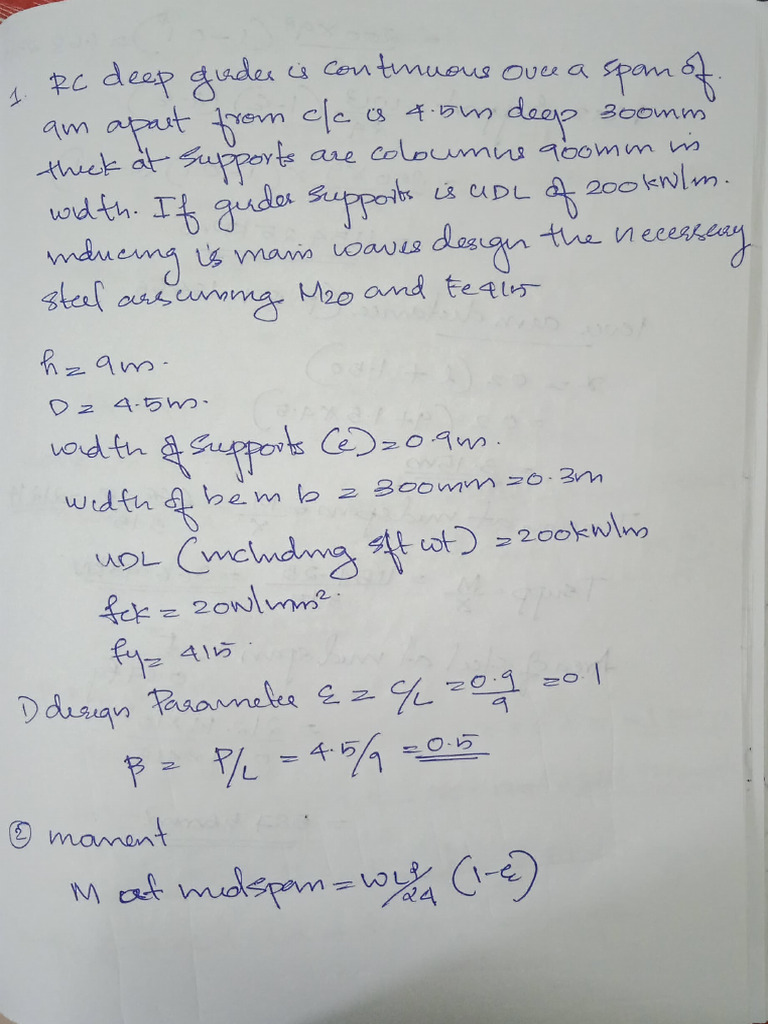 1. RC deep girder is continuous over a span of
9m apart from c/c is 4.5m deep 300mm
thick at supports are coloumns 900mm in
width. If girder supports is UDL of 200kN/m.
inducing is main waves design the necessary
steel assuming M20 and Fe415
h = 9m.
D = 4.5m.
width of supports (c) = 0.9m.
width of bem b = 300mm = 0.3m
UDL (including slft wt) = 200kN/m
fck = 20N/mm².
fy = 415.
1) design Parameter ε = c/L = 0.9/9 = 0.1
β = P/L = 4.5/9 = 0.5
② moment
M at midspan = wL²/24 (1-ε)